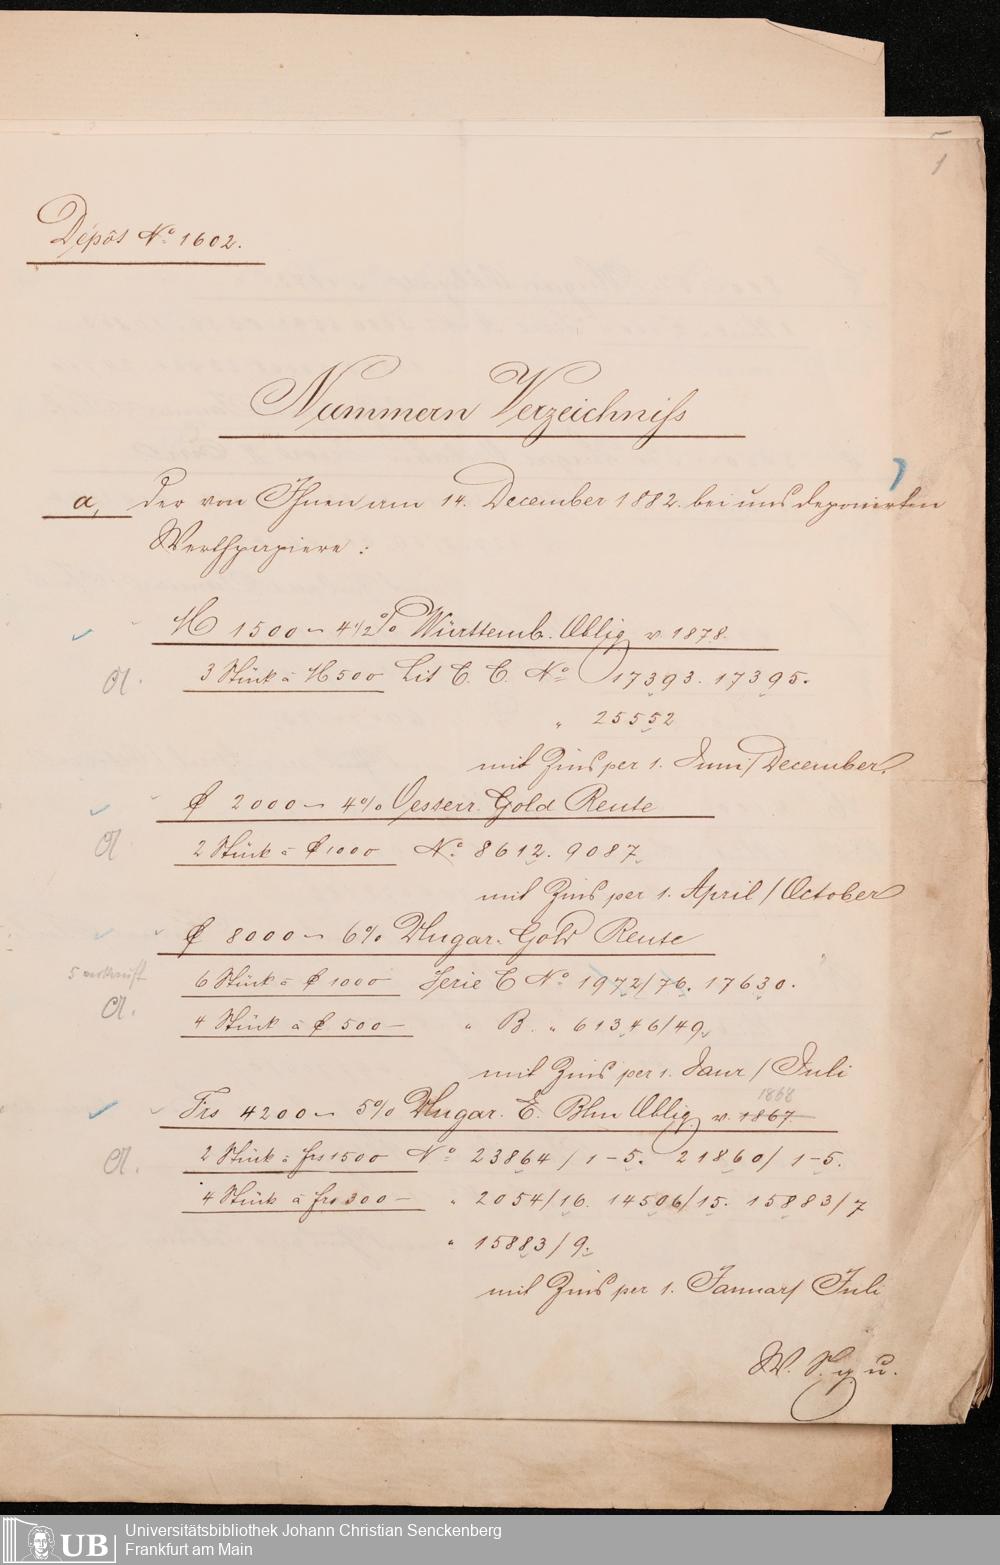 5
1
Dépôt No 1602.
Nummern Verzeichniss
a, der von Ihnen am 14. December 1882. bei uns deponirten
Werthpapiere :
M 1500 – 4 1/2 % Württemb. Oblig. v. 1878.
3 Stück à M 500 Lit C. C. No 17393. 17395.
" 25552
mit Zins per 1. Juni/December.
f 2000 – 4% Oesterr. Gold Rente
2 Stück à f 1000 No 8612. 9087.
mit Zins per 1. April / October
f 8000 – 6% Ungar. Gold Rente
5 verkauft
6 Stück à f 1000 Serie C No 1972/76. 17630.
4 Stück à f 500 – " B. " 61346/49.
mit Zins per 1. Janr / Juli
1868
Frs 4200 – 5% Ungar. E. Bhn Oblig. v. 1867
2 Stück à frs 1500 No 23864 / 1-5. 21860 / 1-5.
4 Stück à frs 300 – " 2054/16. 14506/15. 15883/7
" 15883/9.
mit Zins per 1. Januar/ Juli
W. S. g. u.
UB
Universitätsbibliothek Johann Christian Senckenberg
Frankfurt am Main